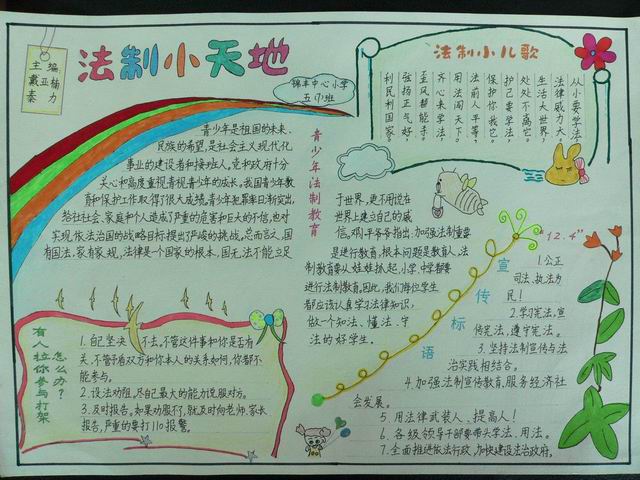 主编
戴亚楠
秦力
法制小天地
锦丰中心小学
五(7)班
法制小儿歌
从小要学法,
法律威力大。
生活大世界,
处处不离它。
护己要学法,
保护你我它。
法前人人平等,
用法闯天下。
齐心来学法,
歪风帮能手。
弘扬正气好,
利民利国家。
青少年法制教育
青少年是祖国的未来、
民族的希望,是社会主义现代化
事业的建设者和接班人,党和政府十分
关心和高度重视青少年的成长,我国青少年教
育和保护工作取得了很大成绩,青少年犯罪率日渐突出,
给社社会、家庭和个人造成了严重的危害和巨大的不信,也对
实现依法治国的战略目标提出了严峻的挑战,总而言之,国
有国法,家有家规,法律是一个国家的根本,国无法不能立足
于世界,更不用说在
世界上建立自己的威
信,邓小平爷爷指出:加强法制重要
是进行教育,根本问题是教育人。法
制教育要从娃娃抓起,小学,中学都要
进行法制教育。因此,我们每位学生
都应该认真学习法律知识,
做一个知法、懂法、守
法的好学生。
有人拉你参与打架
怎么办?
1.自己坚决不去。不管这件事和你是否有
关,不管予看双方和你本人的关系如何,你都不
能参与。
2.设法劝阻,尽自己最大的能力说服对方。
3.及时报告,如果劝服不了,就及时向老师、家长
报告,严重的要打110报警。
宣传标语
"12.4"
1.公正
司法、执法为
民!
2.学习宪法、宣
传宪法、遵守宪法。
3.坚持法制宣传与法
治实践相结合。
4.加强法制宣传教育,服务经济社
会发展。
5.用法律武装人、提高人!
6.各级领导干部要带头学法、用法。
7.全面推进依法行政,加快建设法治政府。